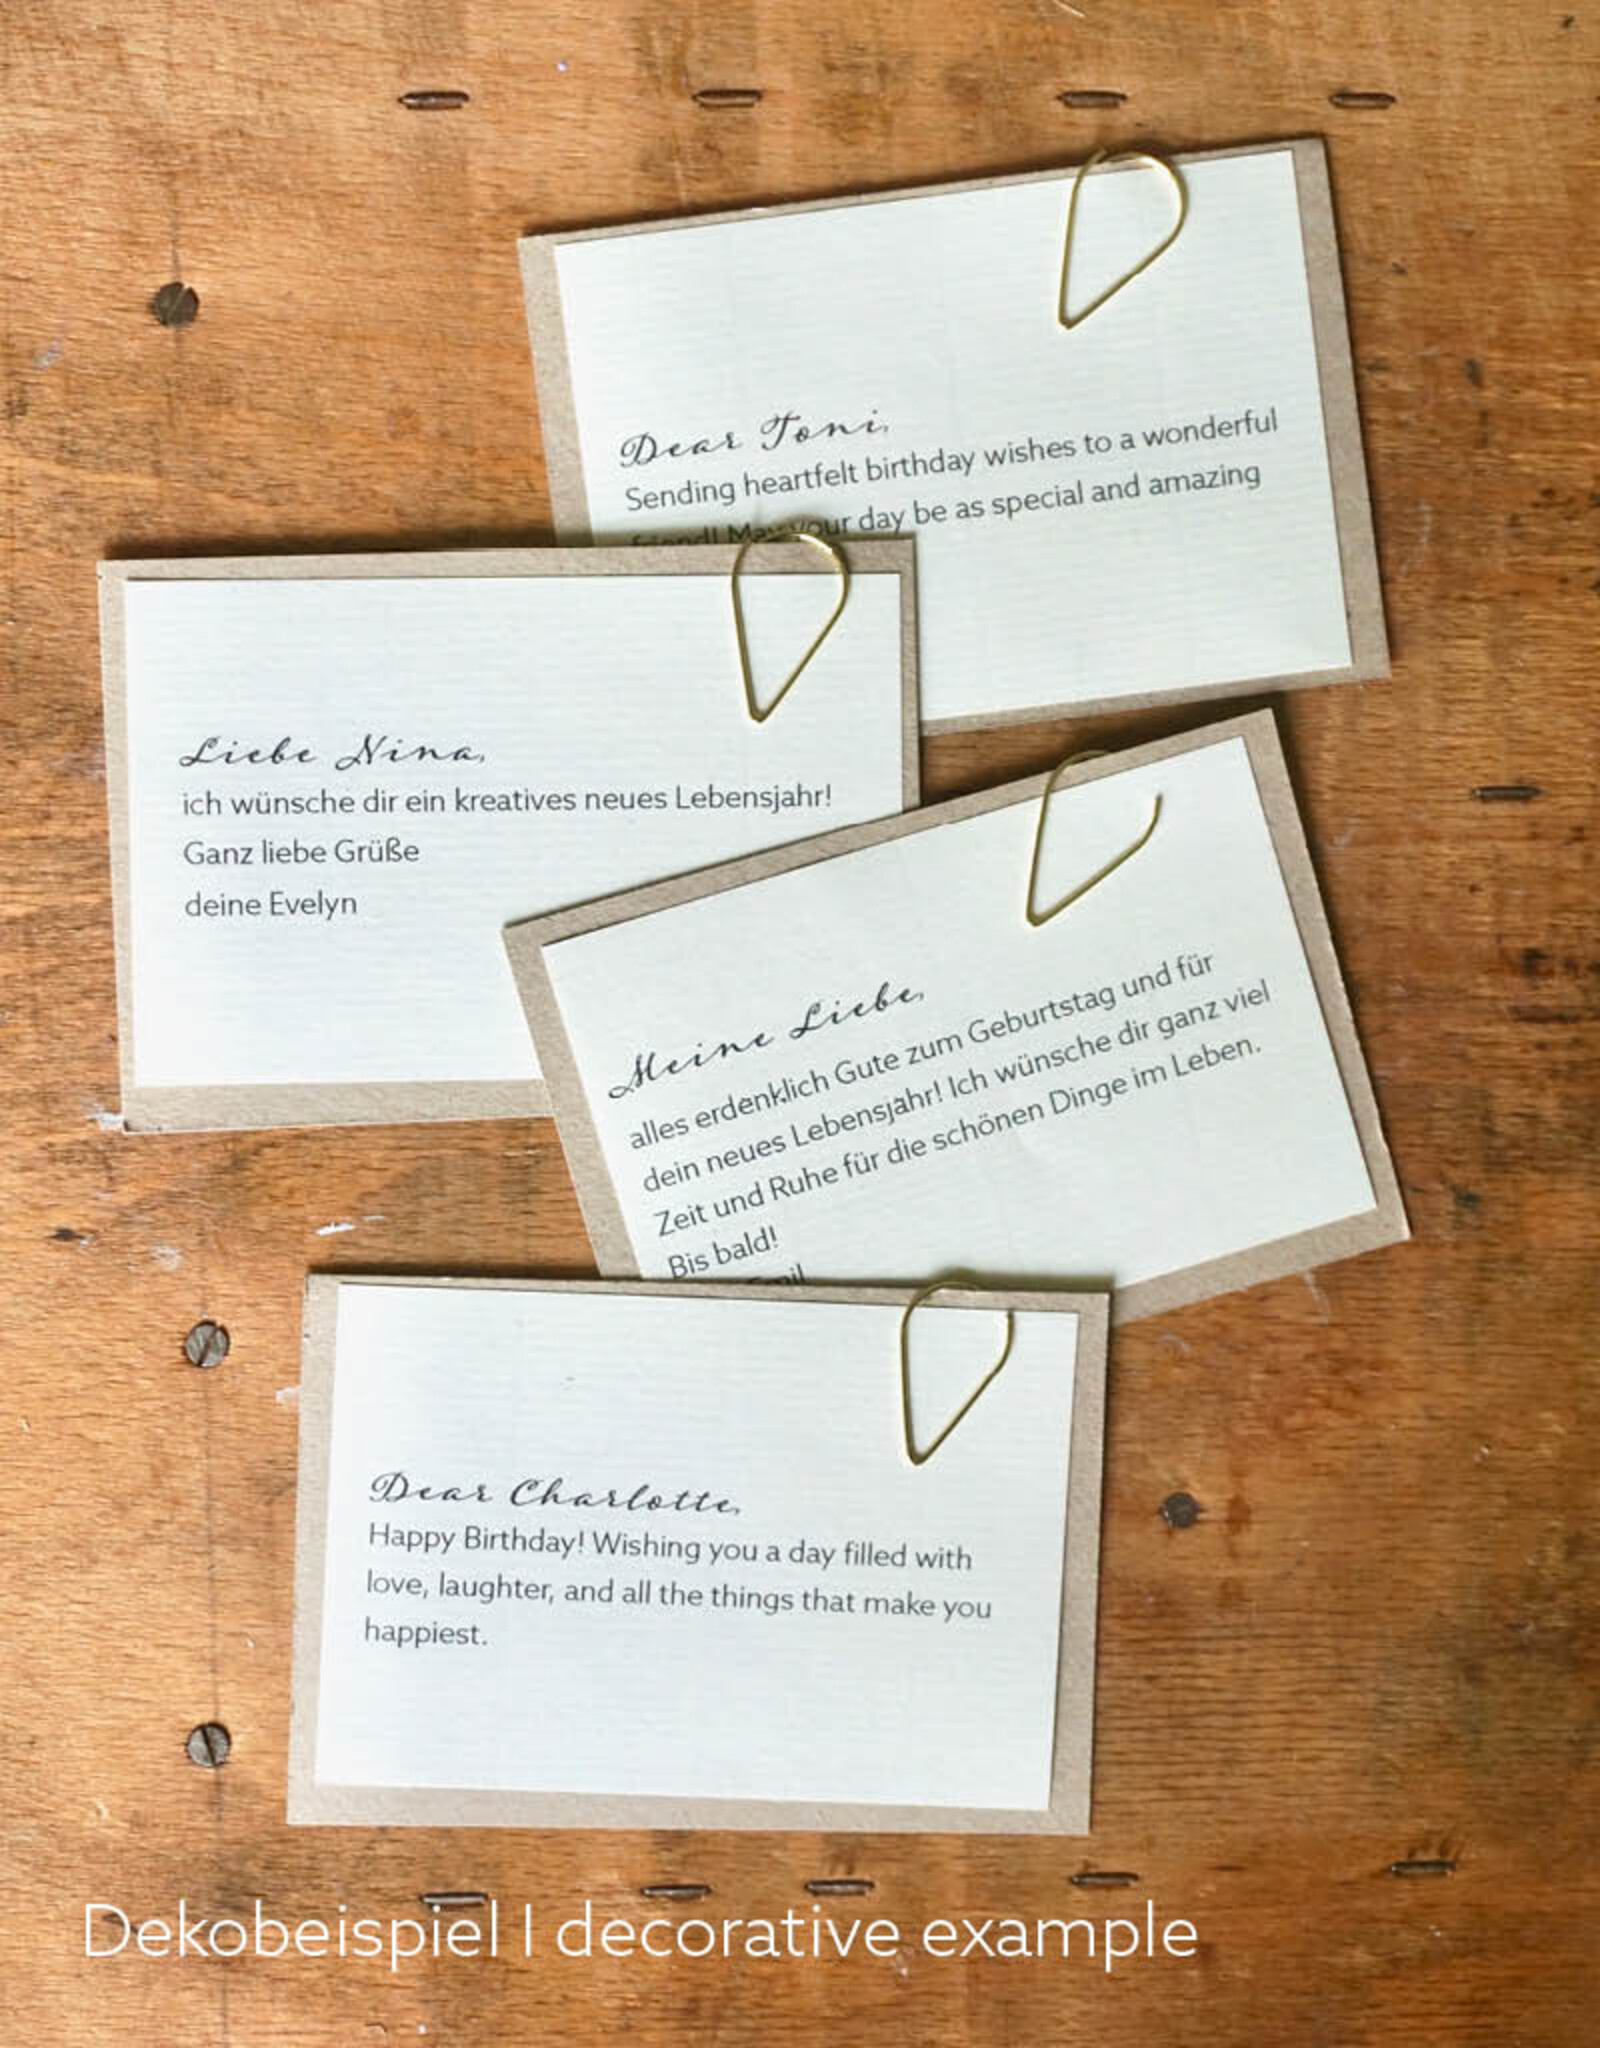 Dear Toni,
Sending heartfelt birthday wishes to a wonderful
friend! May your day be as special and amazing
Liebe Nina,
ich wünsche dir ein kreatives neues Lebensjahr!
Ganz liebe Grüße
deine Evelyn
Meine Liebe,
alles erdenklich Gute zum Geburtstag und für
dein neues Lebensjahr! Ich wünsche dir ganz viel
Zeit und Ruhe für die schönen Dinge im Leben.
Bis bald!
Emil
Dear Charlotte,
Happy Birthday! Wishing you a day filled with
love, laughter, and all the things that make you
happiest.
Dekobeispiel I decorative example